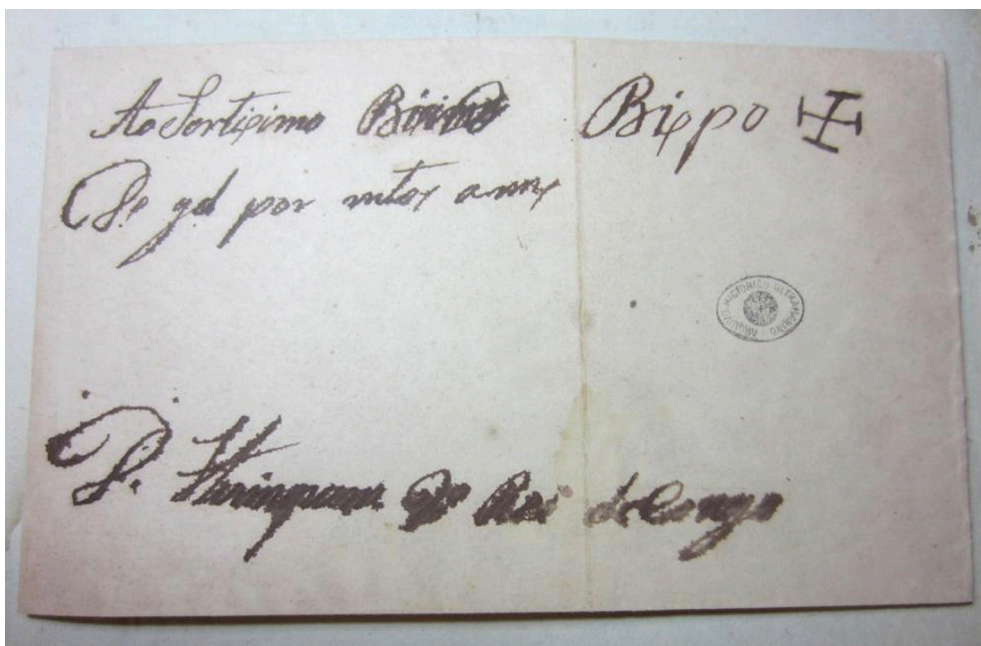 Ao Sortiximo Bixpo
Ds. gd por mtos annx
ARQUIVO HISTORICO ULTRAMARINO
D. Rei de Congo